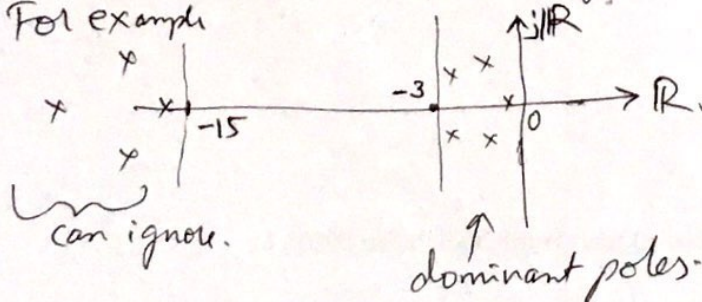 For example
jℝ
-3
ℝ.
-15
0
can ignore.
dominant poles.